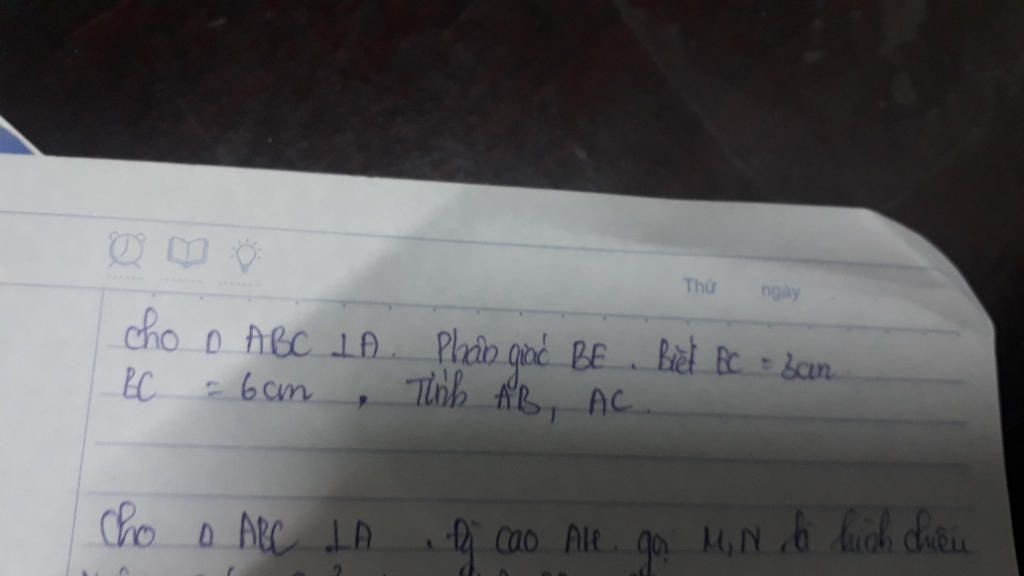 Thứ ngày
Cho Δ ABC ⊥A. Phân giác BE. Biết EC = 3cm
BC = 6cm, Tính AB, AC.
Cho Δ ABC ⊥A. Đg cao AH. gọi M, N là hình chiếu